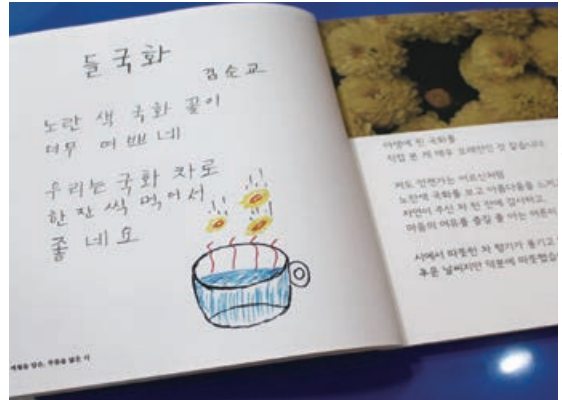 들국화
김순교
노란 색 국화 꽃이
너무 여쁘네
우리는 국화 차로
한 잔 씩 먹어서
좋네요
야생에 핀 국화를
직접 본 게 매우 오래만인 것 같습니다.
저도 언젠가는 어르신처럼
노란색 국화를 보고 아름다움을 느끼고
자연이 주신 차 한 잔에 감사하고,
마음의 여유를 즐길 줄 아는 어른이
시에서 따뜻한 차 향기가 풍기고
추운 날씨지만 덕분에 따뜻했습